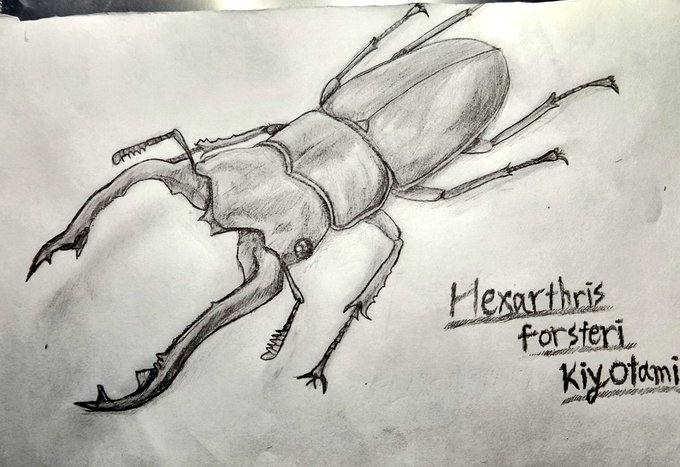 Hexarthris
forsteri
KiyOtami